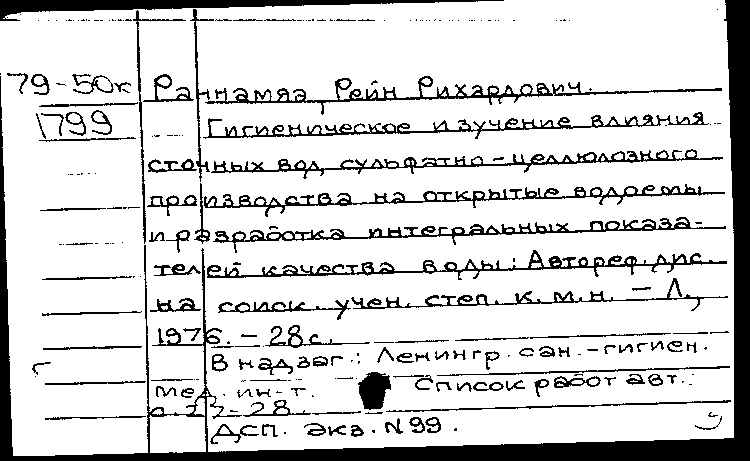 79-50к Раннамяэ, Рейн Рихардович.
1799 Гигиеническое изучение влияния
сточных вод сульфатно-целлюлозного
производства на открытые водоемы
и разработка интегральных показа-
телей качества воды: Автореф. дис.
на соиск. учен. степ. к.м.н. - Л.,
1976. - 28 с.
В надзаг.: Ленингр. сан.-гигиен.
мед. ин-т. Список работ авт.:
с. 27-28.
ДСП. экз. N 99.